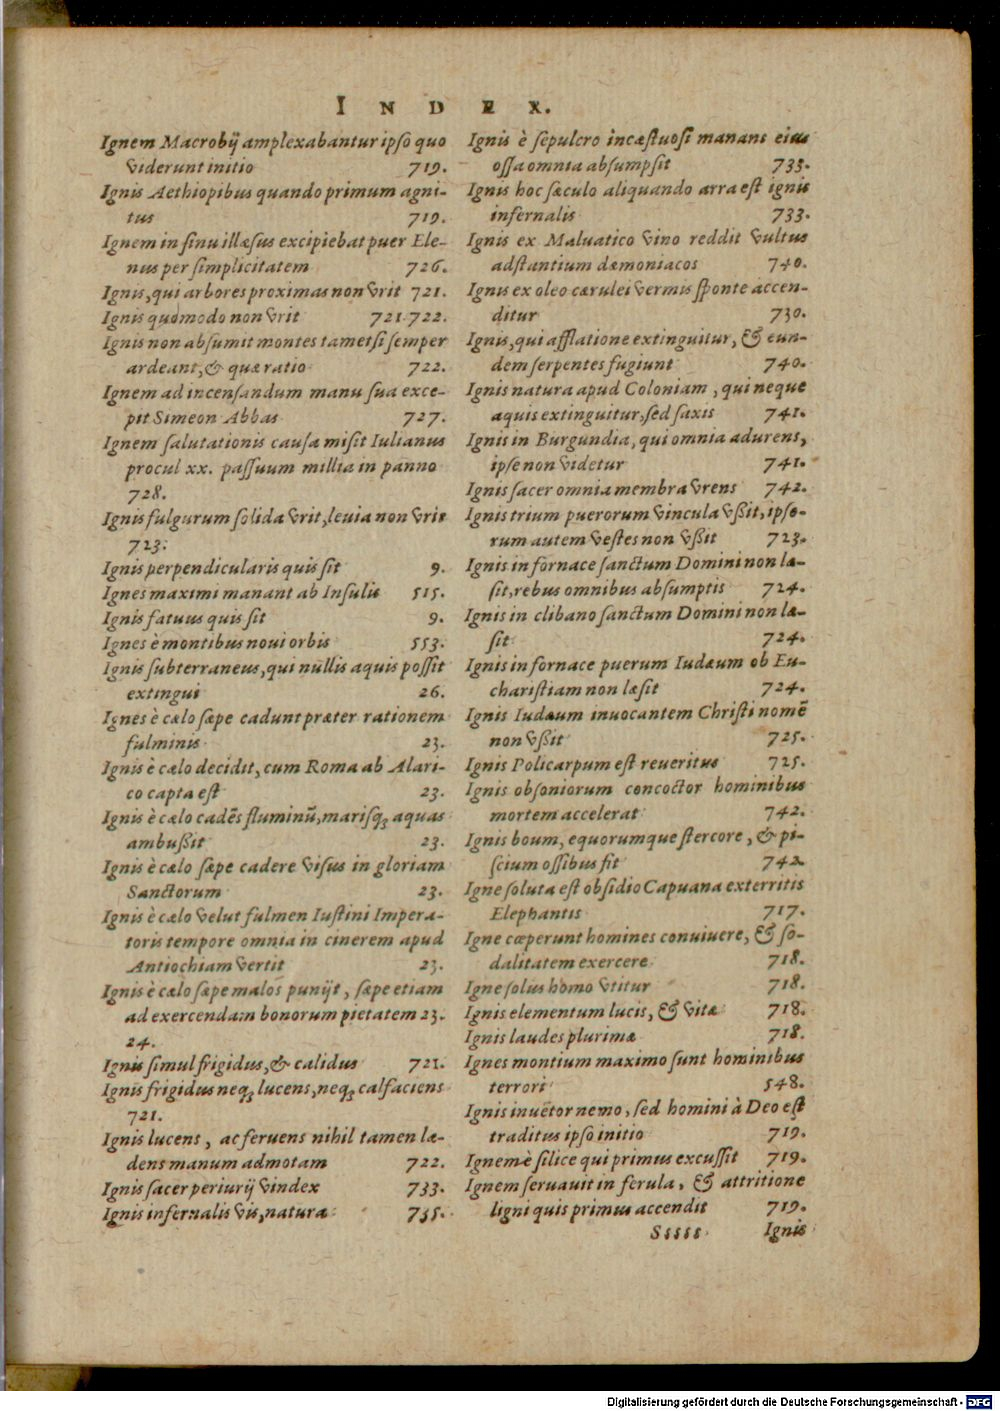 INDEX.
Ignem Macrobij amplexabantur ipso quo
viderunt initio 719.
Ignis Aethiopibus quando primum agni-
tus 719.
Ignem in sinu illæsus excipiebat puer Ele-
nus per simplicitatem 726.
Ignis, qui arbores proximas non vrit 721.
Ignis quomodo non vrit 721.722.
Ignis non absumit montes tametsi semper
ardeant, & quæ ratio 722.
Ignem ad incensandum manu sua exce-
pit Simeon Abbas 727.
Ignem salutationis causa misit Iulianus
procul xx. passuum millia in panno
728.
Ignis fulgurum solida vrit, leuia non vrit
723.
Ignis perpendicularis quis sit 9.
Ignes maximi manant ab Insulis 515.
Ignis fatuus quis sit 9.
Ignes è montibus noui orbis 553.
Ignis subterraneus, qui nullis aquis possit
extingui 26.
Ignes è cælo sæpe cadunt præter rationem
fulminis 23.
Ignis è cælo decidit, cum Roma ab Alari-
co capta est 23.
Ignis è cælo cadẽs fluminũ, marisq; aquas
ambußit 23.
Ignis è cælo sæpe cadere visus in gloriam
Sanctorum 23.
Ignis è cælo velut fulmen Iustini Impera-
toris tempore omnia in cinerem apud
Antiochiam vertit 23.
Ignis è cælo sæpe malos punijt, sæpe etiam
ad exercendam bonorum pietatem 23.
24.
Ignis simul frigidus, & calidus 721.
Ignis frigidus neq; lucens, neq; calfaciens
721.
Ignis lucens, ac feruens nihil tamen læ-
dens manum admotam 722.
Ignis sacer periurij vindex 733.
Ignis infernalis vis, natura 735.
Ignis è sepulcro incæstuosi manans eius
ossa omnia absumpsit 733.
Ignis hoc sæculo aliquando arra est ignis
infernalis 733.
Ignis ex Maluatico vino reddit vultus
adstantium dæmoniacos 740.
Ignis ex oleo cærulei vermis sponte accen-
ditur 730.
Ignis, qui afflatione extinguitur, & eun-
dem serpentes fugiunt 740.
Ignis natura apud Coloniam, qui neque
aquis extinguitur, sed saxis 741.
Ignis in Burgundia, qui omnia adurens,
ipse non videtur 741.
Ignis sacer omnia membra vrens 742.
Ignis trium puerorum vincula vßit, ipso-
rum autem vestes non vßit 723.
Ignis in fornace sanctum Domini non læ-
sit, rebus omnibus absumptis 724.
Ignis in clibano sanctum Domini non læ-
sit 724.
Ignis in fornace puerum Iudæum ob Eu-
charistiam non læsit 724.
Ignis Iudæum inuocantem Christi nomẽ
non vßit 725.
Ignis Policarpum est reueritus 725.
Ignis obsoniorum concoctor hominibus
mortem accelerat 742.
Ignis boum, equorumque stercore, & pi-
scium ossibus fit 742.
Igne soluta est obsidio Capuana exterritis
Elephantis 717.
Igne cœperunt homines conuiuere, & so-
dalitatem exercere 718.
Igne solus homo vtitur 718.
Ignis elementum lucis, & vitæ 718.
Ignis laudes plurimæ 718.
Ignes montium maximo sunt hominibus
terrori 548.
Ignis inuẽtor nemo, sed homini à Deo est
traditus ipso initio 719.
Ignem è silice qui primus excussit 719.
Ignem seruauit in ferula, & attritione
ligni quis primus accendit 719.
Sssss Ignis
Digitalisierung gefördert durch die Deutsche Forschungsgemeinschaft - DFG